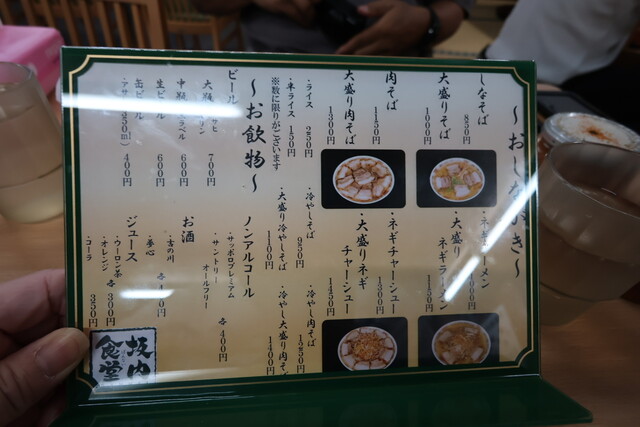 ～おしながき～
しなそば 850円
大盛りそば 1000円
肉そば 1150円
大盛り肉そば 1300円
・ライス 250円
・半ライス 150円
※数に限りがございます
・ネギラーメン
・大盛りネギラーメン
・ネギチャーシュー 1300円
・大盛りネギチャーシュー 1450円
・冷やしそば 950円
・大盛り冷やしそば 1100円
・冷やし肉そば 1250円
・冷やし大盛り肉そば 1400円
～お飲物～
ビール
大瓶 700円
中瓶 ラベル 600円
生ビール 600円
缶ビール 400円
ノンアルコール
・サッポロプレミアム
・サントリー オールフリー
各400円
お酒
・吉の川
・夢心
ジュース
・ウーロン茶
・オレンジ
各300円
・コーラ 350円
坂内食堂